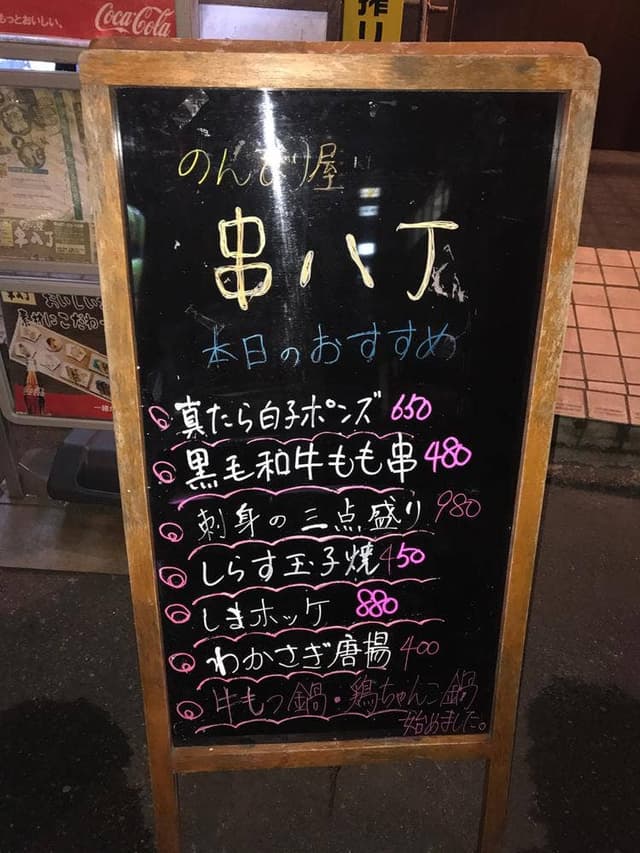 もっとおいしい。
Coca-Cola
搾り
のんびり屋
串八丁
本日のおすすめ
真たら白子ポンズ 650
黒毛和牛もも串 480
刺身の三点盛り 980
しらす玉子焼 450
しまホッケ 880
わかさぎ唐揚 400
牛もつ鍋・鶏ちゃんこ鍋
始めました。
串八丁
おいしい
素材にこだわ
一緒